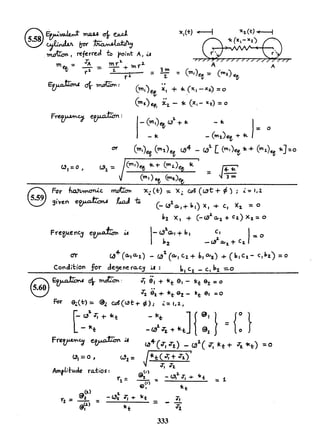 5.58 Equivalent mass of each
cylinder for translatory
motion, referred to point A, is
x₁(t) x₂(t)
k(x₁-x₂)
r r
A A
m_eq = J_A / r² = (m r²/2 + m r²) / r² = 3m/2 = (m₁)_eq = (m₂)_eq
Equations of motion:
(m₁)_eq ẍ₁ + k (x₁-x₂) = 0
(m₂)_eq ẍ₂ - k (x₁-x₂) = 0
Frequency equation:
| -(m₁)_eq ω² + k   -k |
| -k   -(m₂)_eq + k | = 0
or (m₁)_eq (m₂)_eq ω⁴ - ω² [(m₁)_eq k + (m₂)_eq k] = 0
ω₁ = 0, ω₂ = √( ((m₁)_eq k + (m₂)_eq k) / ((m₁)_eq (m₂)_eq) ) = √(4k/3m)
5.59 For harmonic motion x_i(t) = X_i cos(ωt + φ); i = 1,2
given equations lead to
(-ω² a₁ + b₁) X₁ + c₁ X₂ = 0
b₂ X₁ + (-ω² a₂ + c₂) X₂ = 0
Frequency equation is
| -ω² a₁ + b₁   c₁ |
| b₂   -ω² a₂ + c₂ | = 0
or ω⁴ (a₁a₂) - ω² (a₁ c₂ + b₁ a₂) + (b₁c₂ - c₁b₂) = 0
Condition for degeneracy is: b₁c₂ - c₁b₂ = 0
5.60 Equations of motion: J₁ θ̈₁ + k_t θ₁ - k_t θ₂ = 0
J₂ θ̈₂ + k_t θ₂ - k_t θ₁ = 0
For θ_i(t) = Θ_i cos(ωt + φ); i = 1,2,
[ -ω² J₁ + k_t   -k_t ] { Θ₁ } = { 0 }
[ -k_t   -ω² J₂ + k_t ] { Θ₂ } = { 0 }
Frequency equation is ω⁴ (J₁ J₂) - ω² (J₁ k_t + J₂ k_t) = 0
ω₁ = 0, ω₂ = √( k_t (J₁ + J₂) / (J₁ J₂) )
Amplitude ratios: r₁ = Θ₂⁽¹⁾ / Θ₁⁽¹⁾ = (-ω₁² J₁ + k_t) / k_t = 1
r₂ = Θ₂⁽²⁾ / Θ₁⁽²⁾ = (-ω₂² J₁ + k_t) / k_t = - J₁ / J₂
333